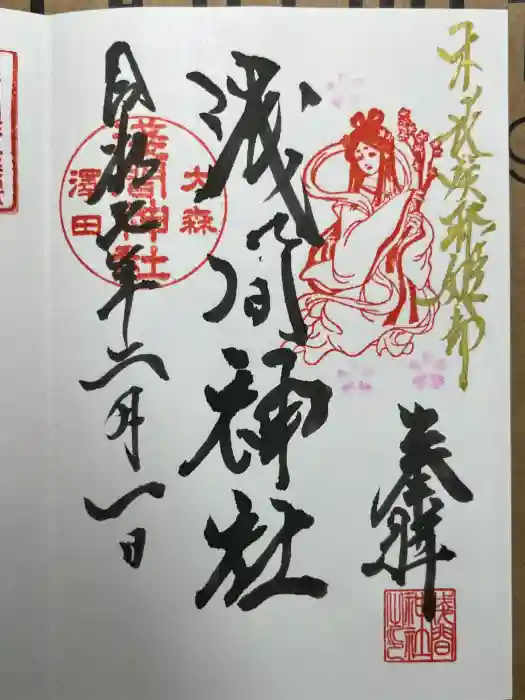 木之花咲耶姫命
奉拝
浅間神社
大森
淺間神社
澤田
令和七年六月一日
浅間
神社
之印